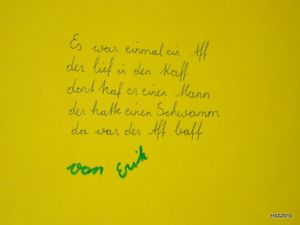 Es war einmal ein Aff
der lief in den Kaff
dort traf er einen Mann
der hatte einen Schwamm
da war der Aff baff
von Erik
HSS2010